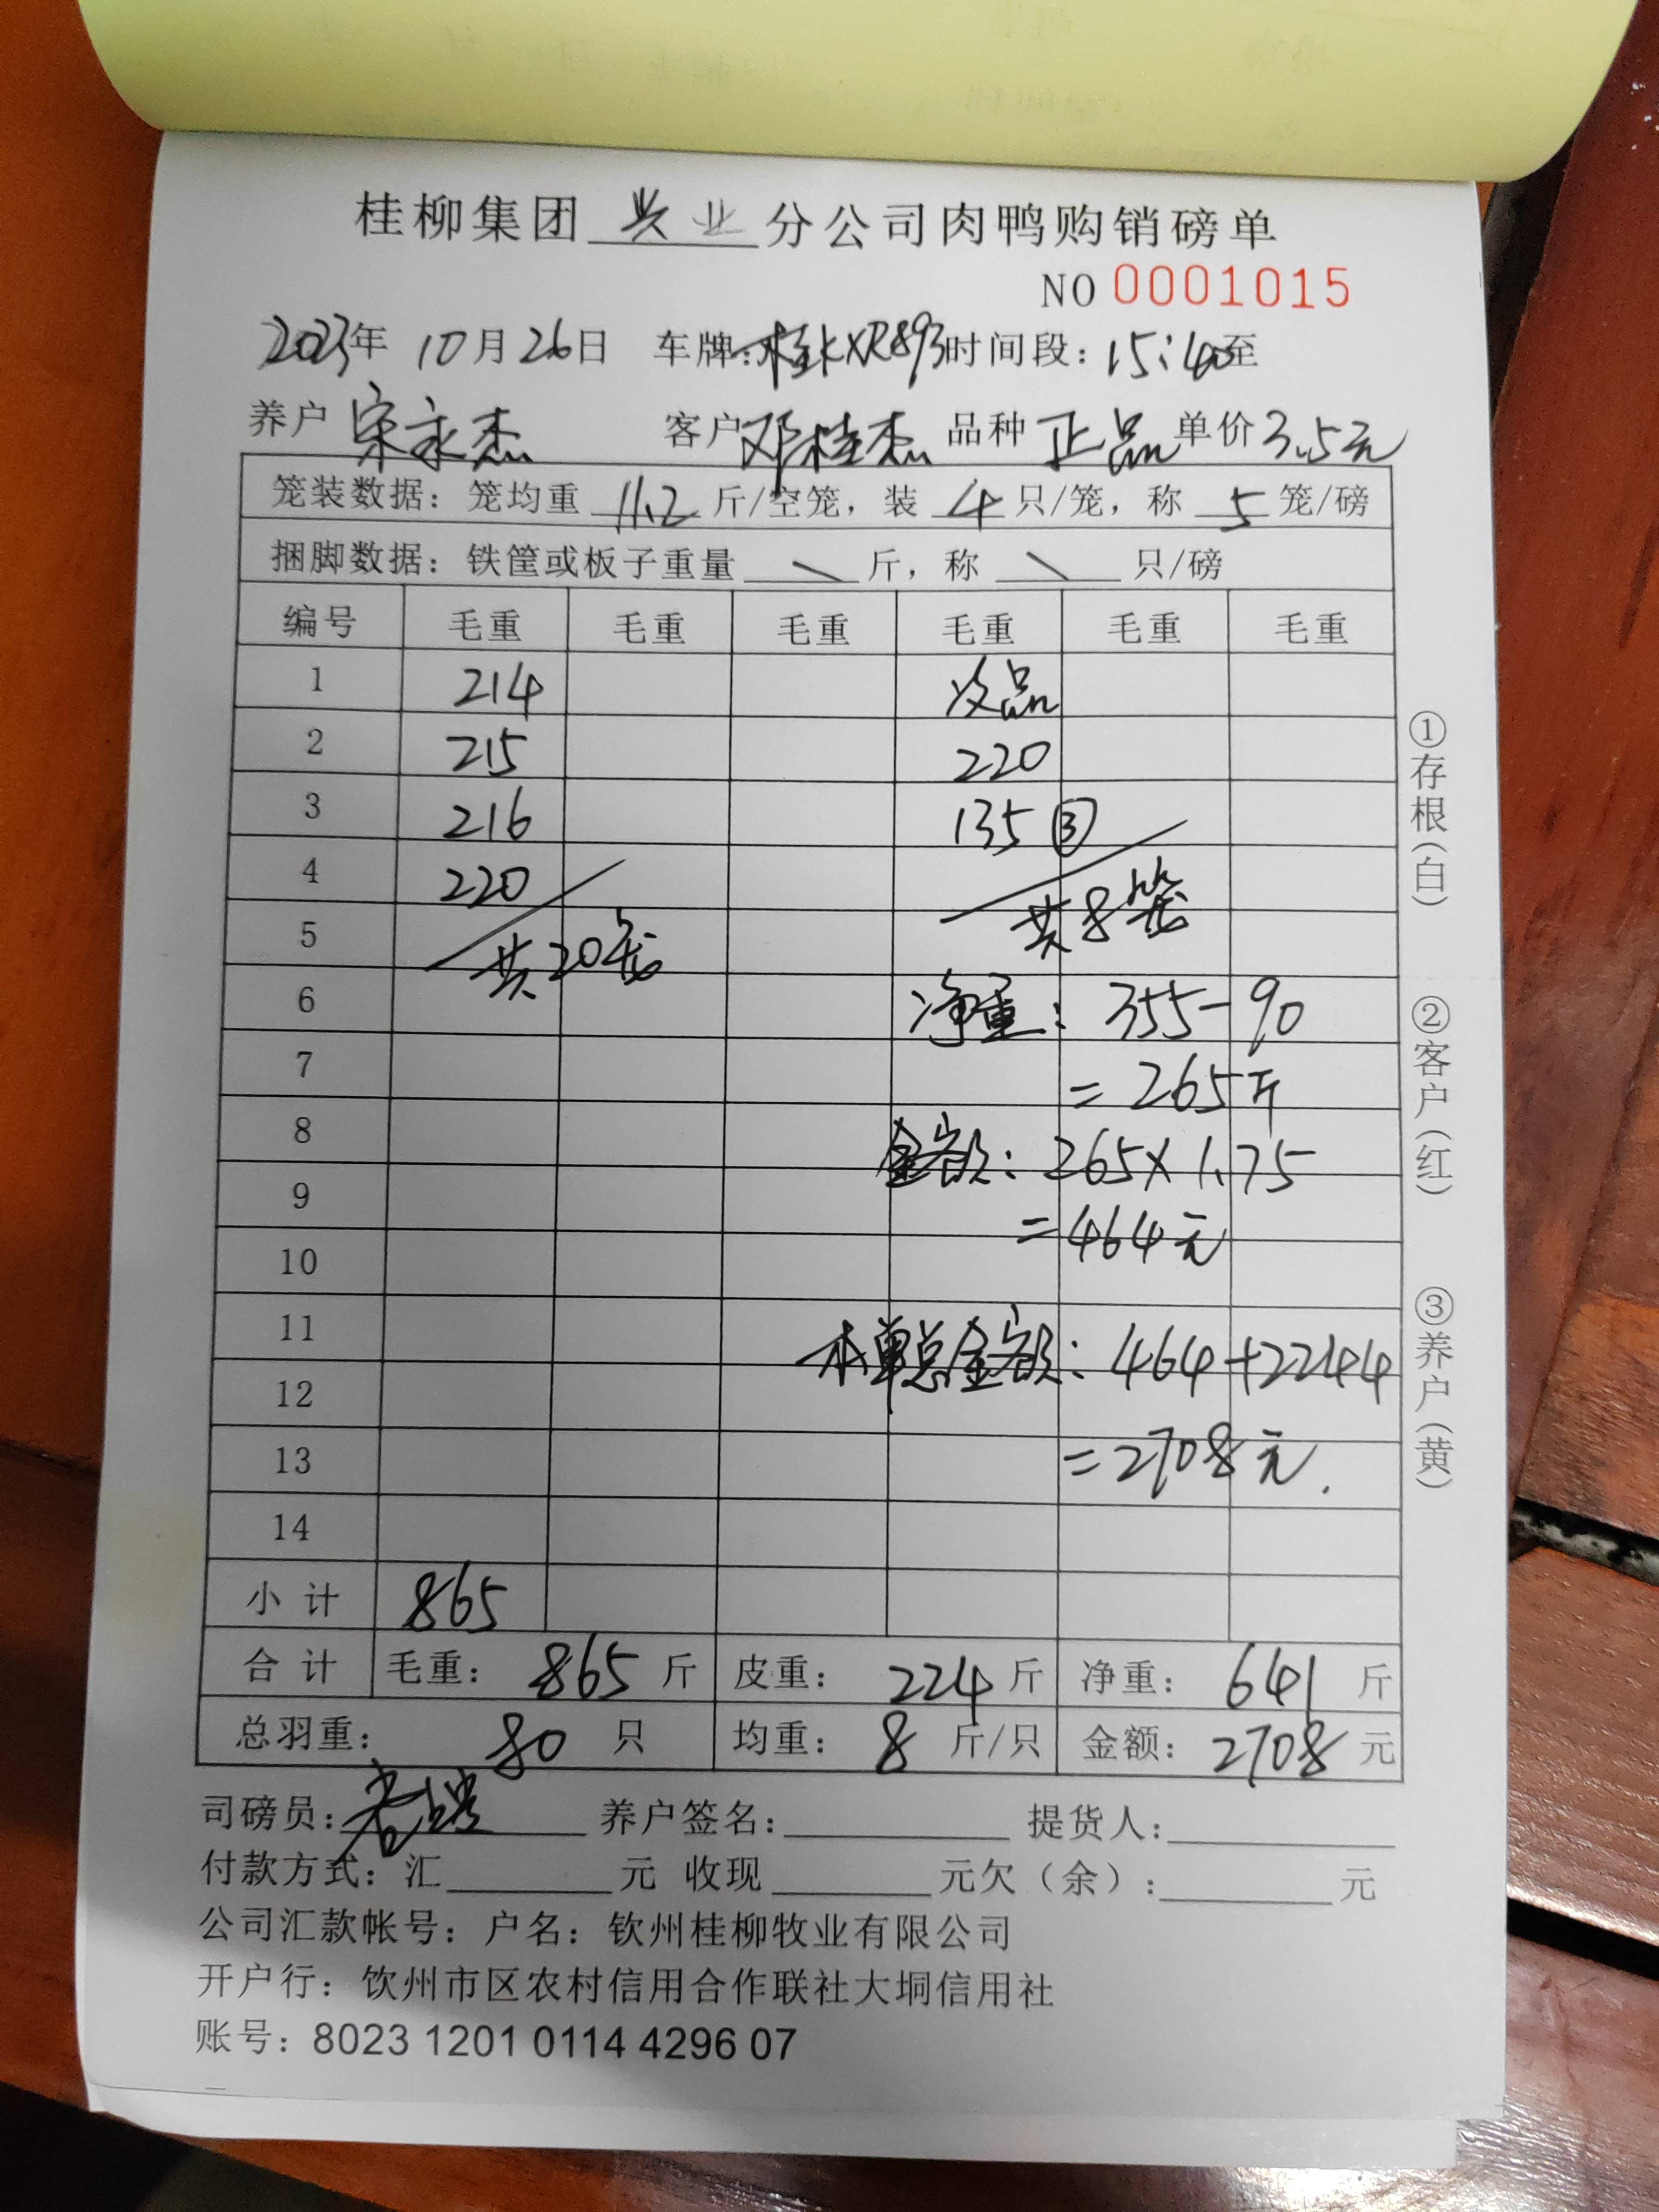 桂柳集团 兴业 分公司肉鸭购销磅单
NO 0001015
2023年 10月26日 车牌:桂KXR893 时间段:15:40至
养户 宋永杰 客户 邓桂杰 品种 正品 单价 3.5元
笼装数据:笼均重 11.2 斤/空笼,装 4 只/笼,称 5 笼/磅
捆脚数据:铁筐或板子重量 \ 斤,称 \ 只/磅
编号 毛重 毛重 毛重 毛重 毛重 毛重
1 214 次品
2 215 220
3 216 135 ③
4 220
共8笼
5
共20笼
6 净重:355-90
7 =265斤
8 金额:265×1.75
9 =464元
10
11 本单总金额:464+2244
12
13 =2708元.
14
小计 865
合计 毛重:865 斤 皮重:224 斤 净重:641 斤
总羽重:80 只 均重:8 斤/只 金额:2708 元
司磅员: 养户签名: 提货人:
付款方式:汇 元 收现 元欠(余): 元
公司汇款帐号:户名:钦州桂柳牧业有限公司
开户行:钦州市区农村信用合作联社大垌信用社
账号:8023 1201 0114 4296 07
①存根(白)
②客户(红)
③养户(黄)